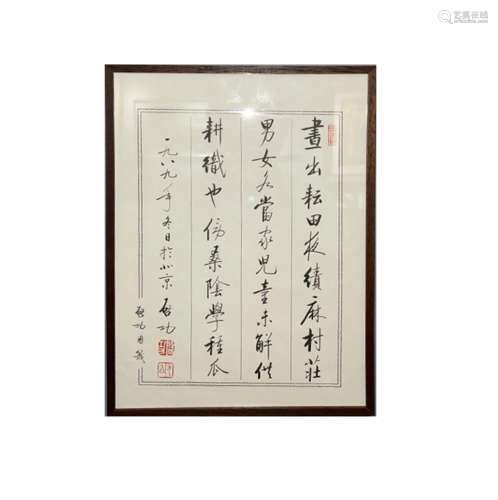 晝出耘田夜績麻村莊
男女各當家兒童未解供
耕織也傍桑陰學種瓜
一九八九年冬日於北京 啟功
啟功用箋
艺狐在线